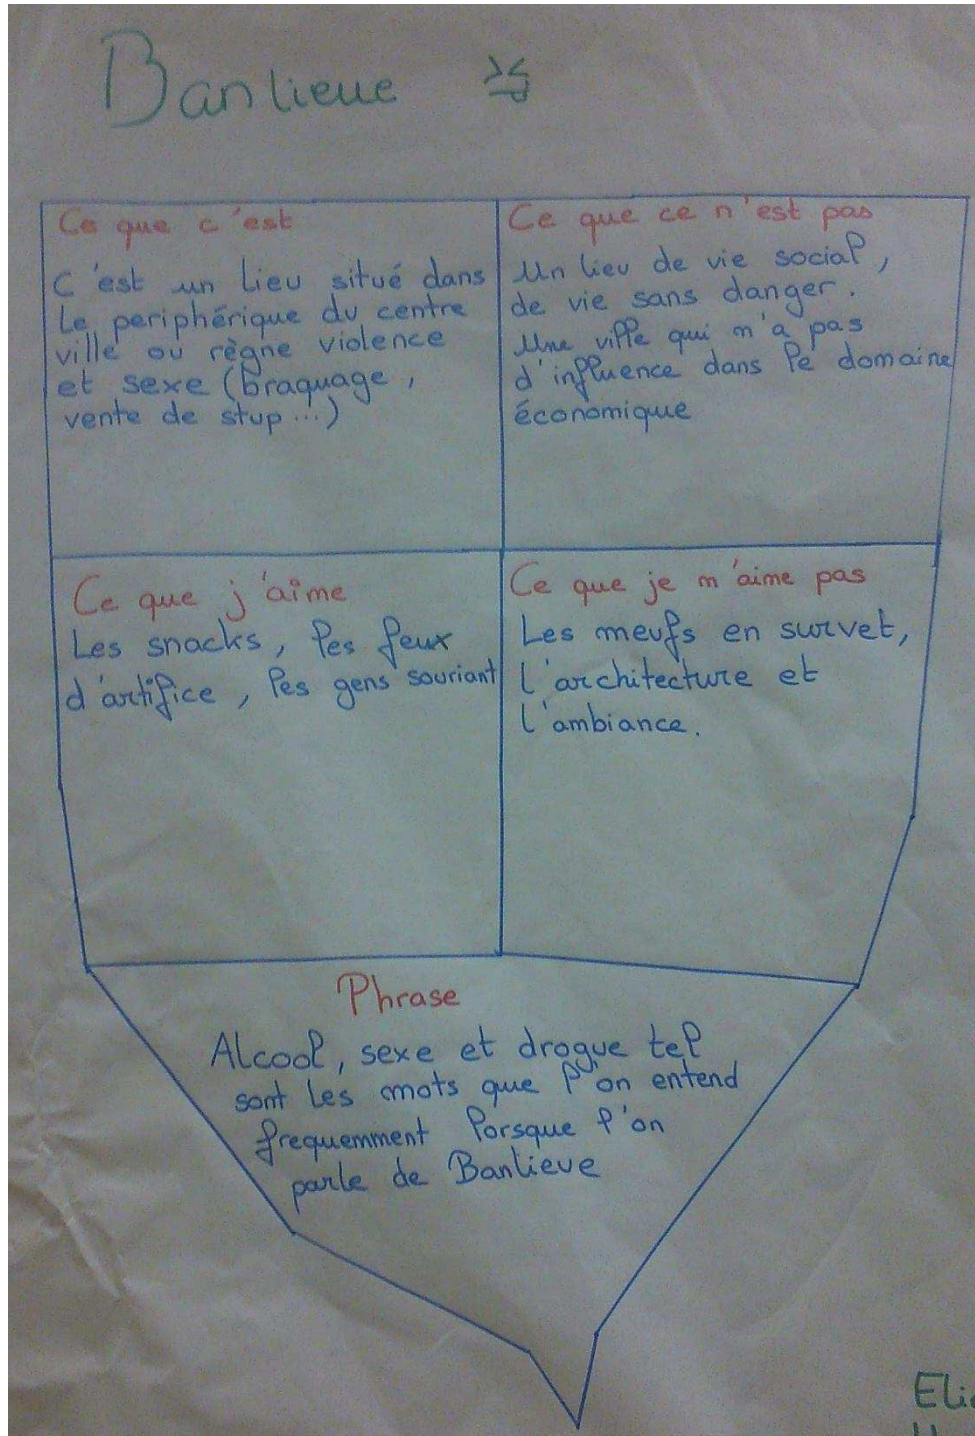 Banlieue
Ce que c'est
C'est un lieu situé dans
le periphérique du centre
ville ou règne violence
et sexe (braquage,
vente de stup...)
Ce que ce n'est pas
Un lieu de vie social,
de vie sans danger.
Une ville qui n'a pas
d'influence dans le domaine
économique
Ce que j'aime
Les snacks, les feux
d'artifice, les gens souriant
Ce que je n'aime pas
Les meufs en survet,
l'architecture et
l'ambiance.
Phrase
Alcool, sexe et drogue tel
sont les mots que l'on entend
frequemment lorsque l'on
parle de Banlieue